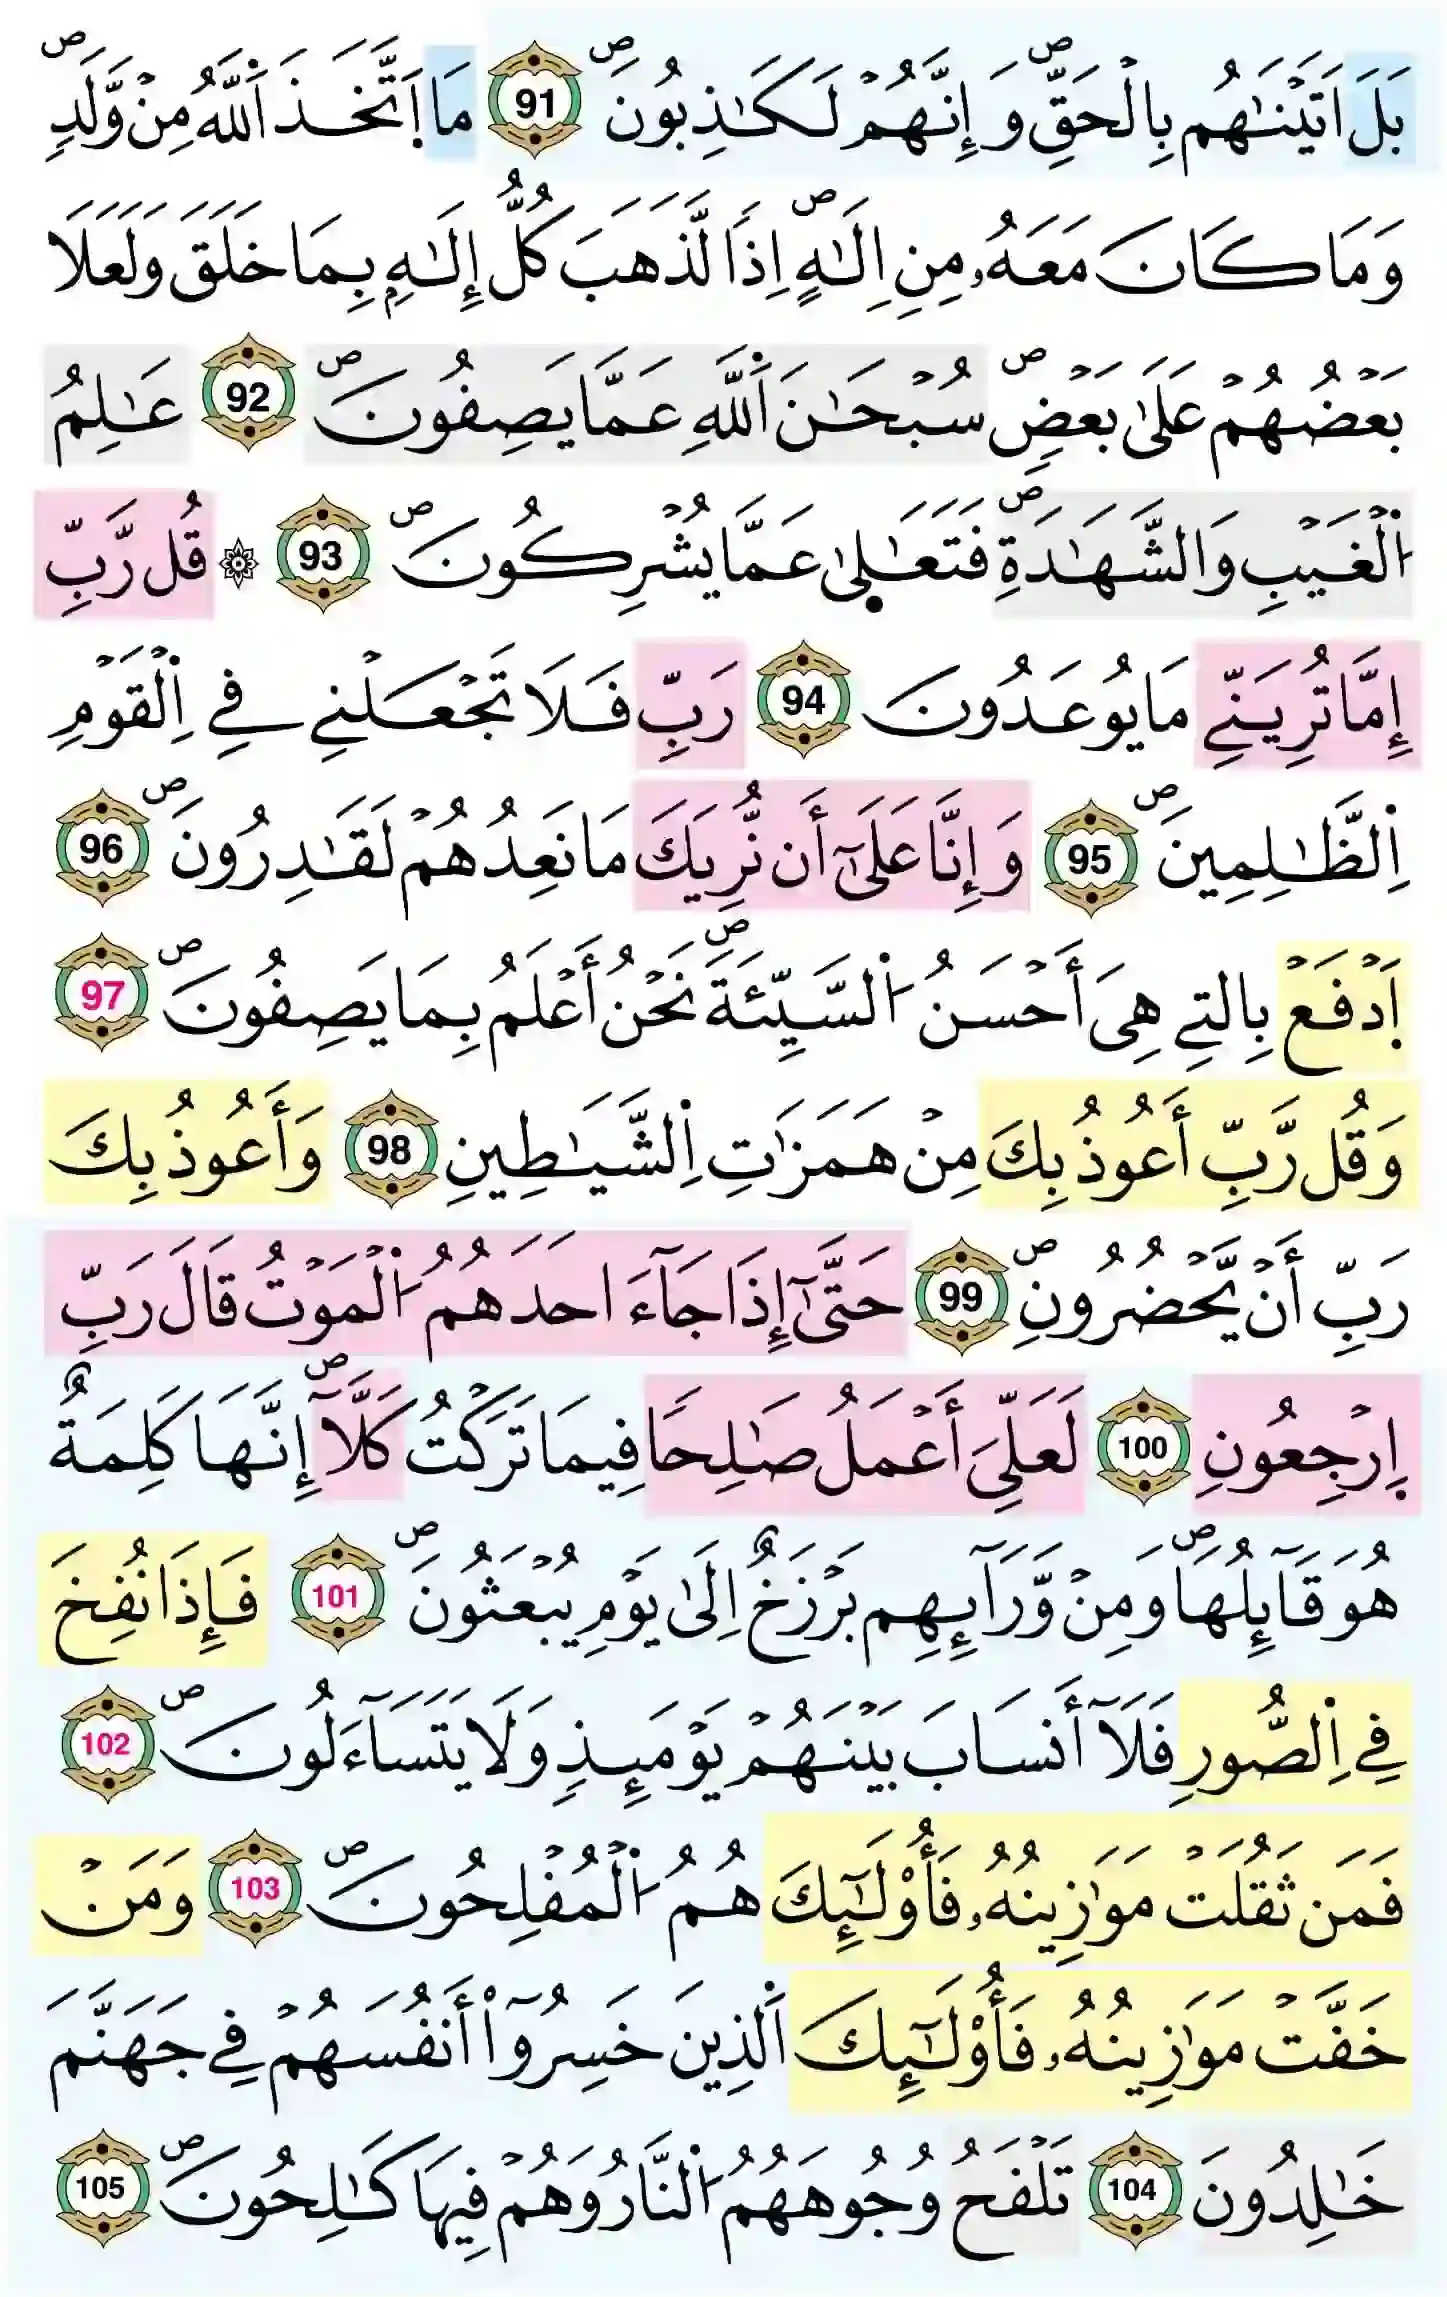 بَلَ اتَيْنَٰهُم بِالْحَقِّۖ وَإِنَّهُمْ لَكَٰذِبُونَۖ 91 مَا اَ۪تَّخَذَ اَ۬للَّهُ مِنْ وَّلَدٖۖ
وَمَا كَانَ مَعَهُۥ مِنِ اِلَٰهٍۖ اِذاٗ لَّذَهَبَ كُلُّ إِلَٰهِۢ بِمَا خَلَقَ وَلَعَلَا
بَعْضُهُمْ عَلَىٰ بَعْضٖۖ سُبْحَٰنَ اَ۬للَّهِ عَمَّا يَصِفُونَۖ 92 عَٰلِمُ
اُ۬لْغَيْبِ وَالشَّهَٰدَةِۖ فَتَعَٰل۪ىٰ عَمَّا يُشْرِكُونَۖ 93 ۞ قُل رَّبِّ
إِمَّا تُرِيَنِّے مَا يُوعَدُونَ 94 رَبِّ فَلَا تَجْعَلْنِے فِے اِ۬لْقَوْمِ
اِ۬لظَّٰلِمِينَۖ 95 وَإِنَّا عَلَىٰٓ أَن نُّرِيَكَ مَا نَعِدُهُمْ لَقَٰدِرُونَۖ 96
اَ۪دْفَعْ بِالتِے هِىَ أَحْسَنُ اُ۬لسَّيِّئَةَۖ نَحْنُ أَعْلَمُ بِمَا يَصِفُونَۖ 97
وَقُل رَّبِّ أَعُوذُ بِكَ مِنْ هَمَزَٰتِ اِ۬لشَّيَٰطِينِ 98 وَأَعُوذُ بِكَ
رَبِّ أَنْ يَّحْضُرُونِۖ 99 حَتَّىٰٓ إِذَا جَآءَ احَدَهُمُ اُ۬لْمَوْتُ قَالَ رَبِّ
اِ۪رْجِعُونِ 100 لَعَلِّىَ أَعْمَلُ صَٰلِحاٗ فِيمَا تَرَكْتُ كَلَّآۖ إِنَّهَا كَلِمَةٌ
هُوَ قَآئِلُهَاۖ وَمِنْ وَّرَآئِهِم بَرْزَخٌ اِلَىٰ يَوْمِ يُبْعَثُونَۖ 101 فَإِذَا نُفِخَ
فِے اِ۬لصُّورِ فَلَآ أَنسَابَ بَيْنَهُمْ يَوْمَئِذٖ وَلَا يَتَسَآءَلُونَۖ 102
فَمَن ثَقُلَتْ مَوَٰزِينُهُۥ فَأُوْلَٰٓئِكَ هُمُ اُ۬لْمُفْلِحُونَۖ 103 وَمَنْ
خَفَّتْ مَوَٰزِينُهُۥ فَأُوْلَٰٓئِكَ اَ۬لذِينَ خَسِرُوٓاْ أَنفُسَهُمْ فِے جَهَنَّمَ
خَٰلِدُونَ 104 تَلْفَحُ وُجُوهَهُمُ اُ۬لنَّارُ وَهُمْ فِيهَا كَٰلِحُونَۖ 105